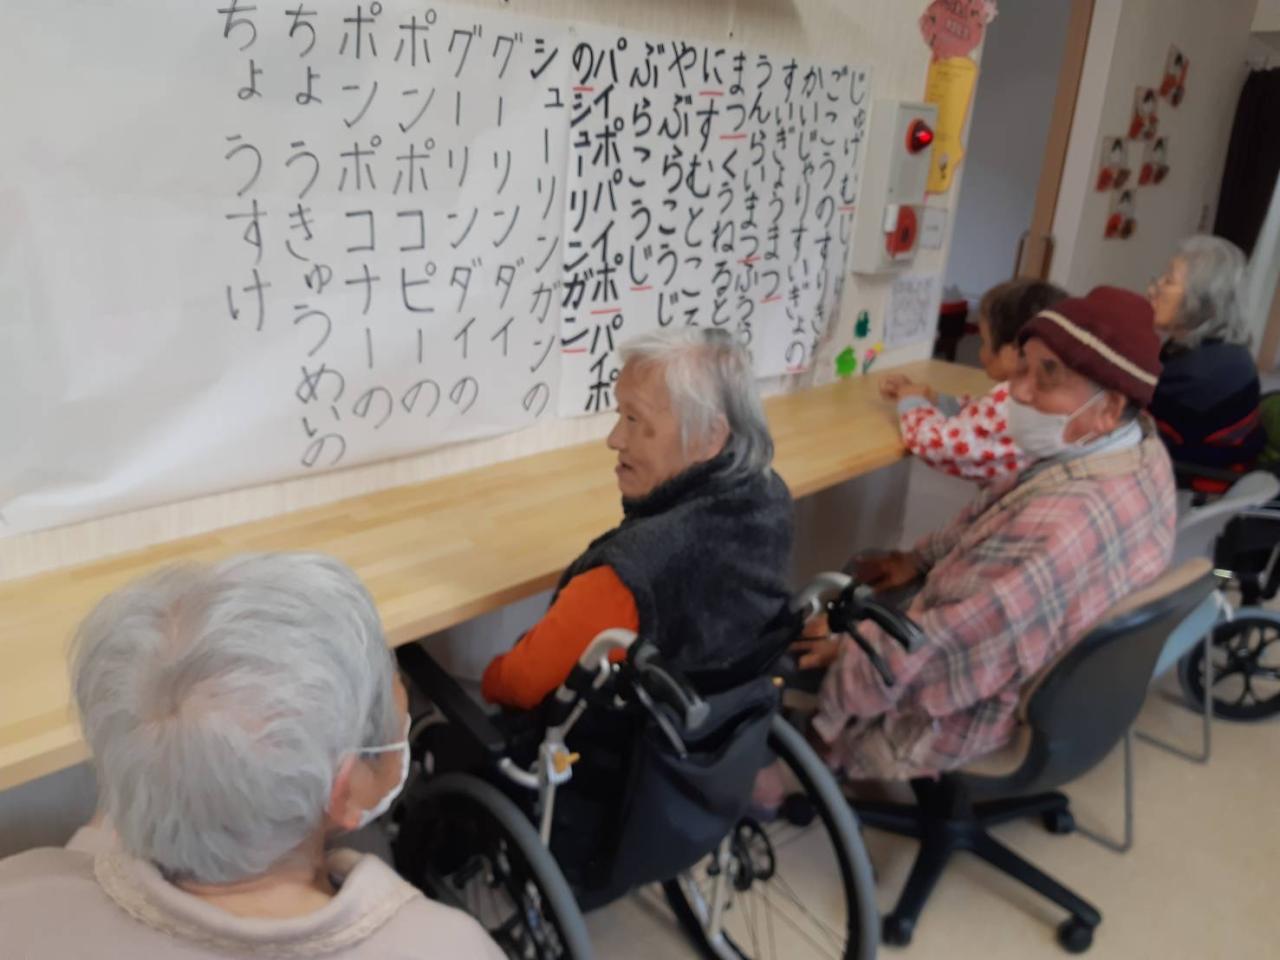 じゅげむじ
ごこうのすりき
かいじゃりすいぎょの
すいぎょうまつ
うんらいまつふう
まつくうねると
にすむところ
やぶらこうじ
ぶらこうじ
パイポパイポパイポ
のシューリンガン
シューリンガンの
グーリンダイ
グーリンダイの
ポンポコピーの
ポンポコナーの
ちょうきゅうめいの
ちょうすけ